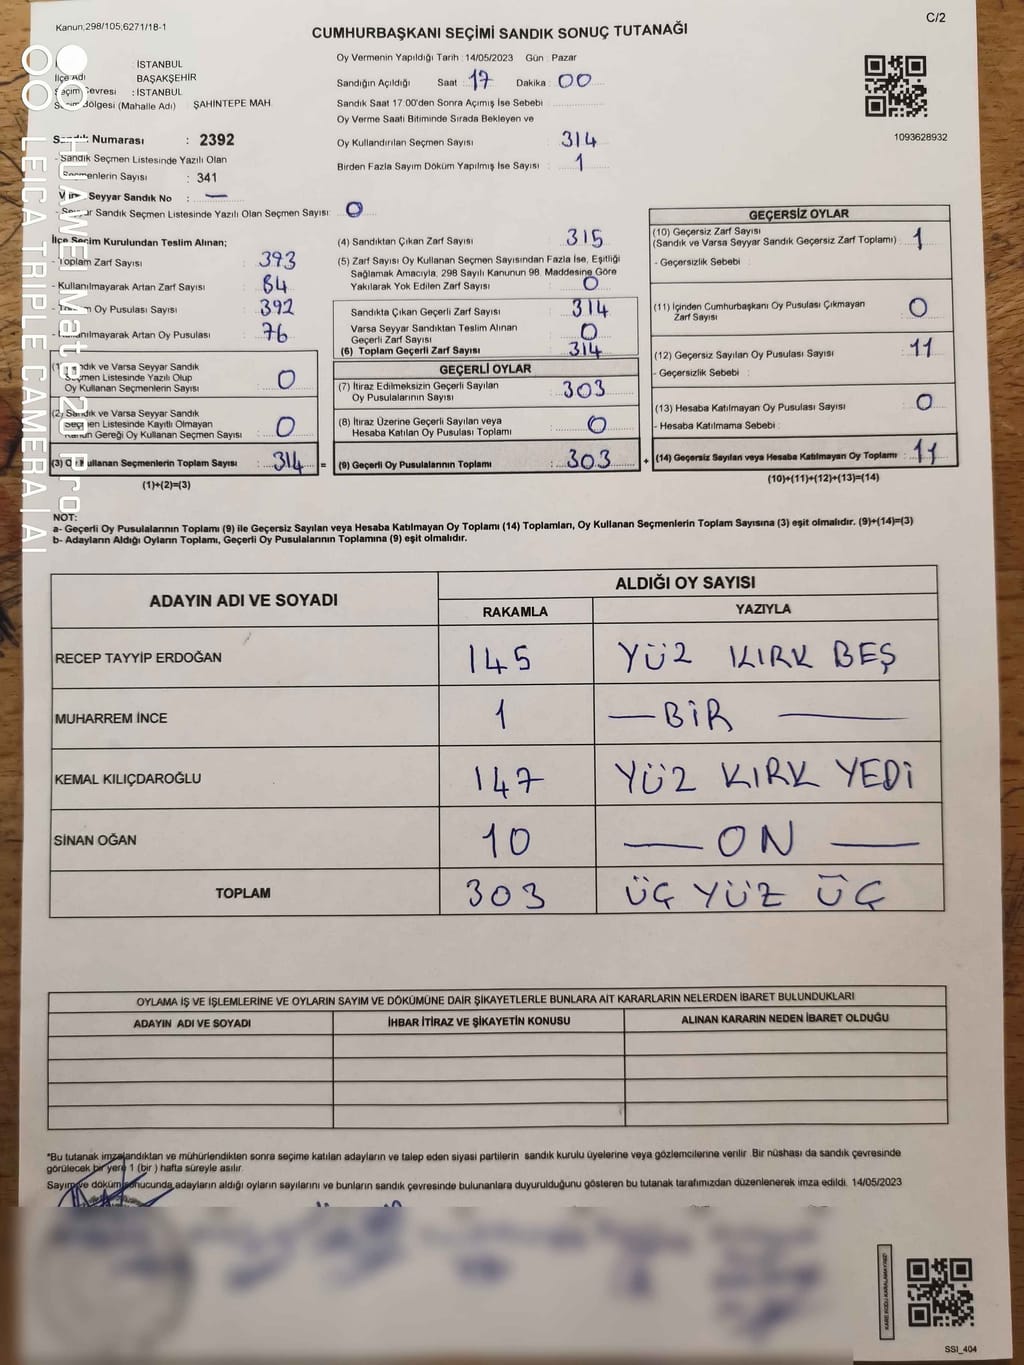 Kanun,298/105,6271/18-1
C/2
CUMHURBAŞKANI SEÇİMİ SANDIK SONUÇ TUTANAĞI
: İSTANBUL
İlçe Adı : BAŞAKŞEHİR
Seçim Çevresi : İSTANBUL
Seçim Bölgesi (Mahalle Adı) : ŞAHİNTEPE MAH.
Sandık Numarası : 2392
- Sandık Seçmen Listesinde Yazılı Olan
Seçmenlerin Sayısı : 341
Varsa Seyyar Sandık No : —
- Seyyar Sandık Seçmen Listesinde Yazılı Olan Seçmen Sayısı: 0
Oy Vermenin Yapıldığı Tarih : 14/05/2023 Gün : Pazar
Sandığın Açıldığı Saat : 17 Dakika : 00
Sandık Saat 17:00'den Sonra Açımış İse Sebebi :
Oy Verme Saati Bitiminde Sırada Bekleyen ve
Oy Kullandırılan Seçmen Sayısı : 314
Birden Fazla Sayım Döküm Yapılmış İse Sayısı : 1
1093628932
İlçe Seçim Kurulundan Teslim Alınan;
- Toplam Zarf Sayısı : 393
- Kullanılmayarak Artan Zarf Sayısı : 84
- Toplam Oy Pusulası Sayısı : 392
- Kullanılmayarak Artan Oy Pusulası : 76
(1) Sandık ve Varsa Seyyar Sandık
Seçmen Listesinde Yazılı Olup
Oy Kullanan Seçmenlerin Sayısı : 0
(2) Sandık ve Varsa Seyyar Sandık
Seçmen Listesinde Kayıtlı Olmayan
Kanun Gereği Oy Kullanan Seçmen Sayısı : 0
(3) Oy Kullanan Seçmenlerin Toplam Sayısı : 314 =
(1)+(2)=(3)
(4) Sandıktan Çıkan Zarf Sayısı : 315
(5) Zarf Sayısı Oy Kullanan Seçmen Sayısından Fazla İse, Eşitliği
Sağlamak Amacıyla, 298 Sayılı Kanunun 98. Maddesine Göre
Yakılarak Yok Edilen Zarf Sayısı : 0
Sandıkta Çıkan Geçerli Zarf Sayısı : 314
Varsa Seyyar Sandıktan Teslim Alınan
Geçerli Zarf Sayısı : 0
(6) Toplam Geçerli Zarf Sayısı : 314
GEÇERLİ OYLAR
(7) İtiraz Edilmeksizin Geçerli Sayılan
Oy Pusulalarının Sayısı : 303
(8) İtiraz Üzerine Geçerli Sayılan veya
Hesaba Katılan Oy Pusulası Toplamı : 0
(9) Geçerli Oy Pusulalarının Toplamı : 303 +
GEÇERSİZ OYLAR
(10) Geçersiz Zarf Sayısı
(Sandık ve Varsa Seyyar Sandık Geçersiz Zarf Toplamı) : 1
- Geçersizlik Sebebi :
(11) İçinden Cumhurbaşkanı Oy Pusulası Çıkmayan
Zarf Sayısı : 0
(12) Geçersiz Sayılan Oy Pusulası Sayısı : 11
- Geçersizlik Sebebi :
(13) Hesaba Katılmayan Oy Pusulası Sayısı : 0
- Hesaba Katılmama Sebebi :
(14) Geçersiz Sayılan veya Hesaba Katılmayan Oy Toplamı : 11
(10)+(11)+(12)+(13)=(14)
NOT:
a- Geçerli Oy Pusulalarının Toplamı (9) ile Geçersiz Sayılan veya Hesaba Katılmayan Oy Toplamı (14) Toplamları, Oy Kullanan Seçmenlerin Toplam Sayısına (3) eşit olmalıdır. (9)+(14)=(3)
b- Adayların Aldığı Oyların Toplamı, Geçerli Oy Pusulalarının Toplamına (9) eşit olmalıdır.
ADAYIN ADI VE SOYADI
ALDIĞI OY SAYISI
RAKAMLA YAZIYLA
RECEP TAYYİP ERDOĞAN 145 YÜZ KIRK BEŞ
MUHARREM İNCE 1 —BİR —
KEMAL KILIÇDAROĞLU 147 YÜZ KIRK YEDİ
SİNAN OĞAN 10 — ON —
TOPLAM 303 ÜÇ YÜZ ÜÇ
OYLAMA İŞ VE İŞLEMLERİNE VE OYLARIN SAYIM VE DÖKÜMÜNE DAİR ŞİKAYETLERLE BUNLARA AİT KARARLARIN NELERDEN İBARET BULUNDUKLARI
ADAYIN ADI VE SOYADI İHBAR İTİRAZ VE ŞİKAYETİN KONUSU ALINAN KARARIN NEDEN İBARET OLDUĞU
*Bu tutanak imzalandıktan ve mühürlendikten sonra seçime katılan adayların ve talep eden siyasi partilerin sandık kurulu üyelerine veya gözlemcilerine verilir. Bir nüshası da sandık çevresinde
görülecek bir yere 1 (bir ) hafta süreyle asılır.
Sayım ve döküm sonucunda adayların aldığı oyların sayılarını ve bunların sandık çevresinde bulunanlara duyurulduğunu gösteren bu tutanak tarafımızdan düzenlenerek imza edildi. 14/05/2023
SSI_404
HUAWEI Mate 20 Pro
LEICA TRIPLE CAMERA | AI